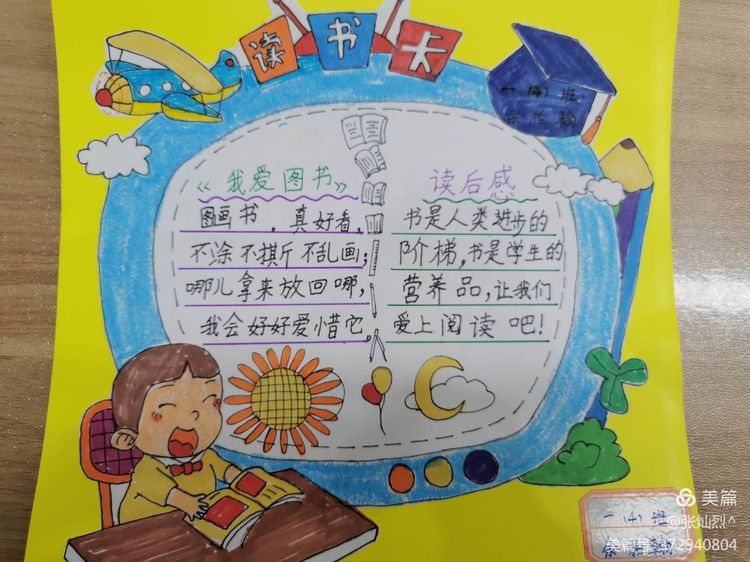 读书卡
一(4)班
《我爱图书》
图画书,真好看,
不涂不撕不乱画;
哪儿拿来放回哪,
我会好好爱惜它.
读后感
书是人类进步的
阶梯,书是学生的
营养品,让我们
爱上阅读吧!
一(4)班
美篇
@张灿烈^
美篇号:372940804